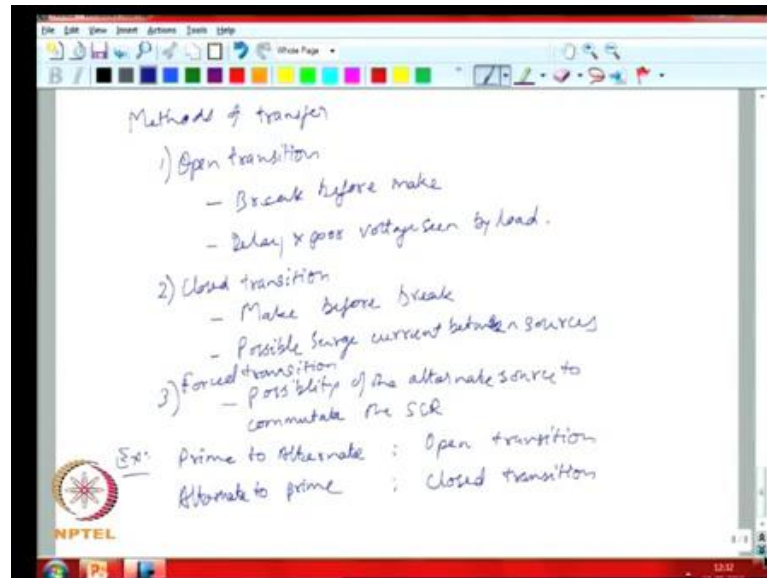 File Edit View Insert Actions Tools Help
Whole Page
B I
Methods of transfer
1) Open transition
- Break before make
- Delay & poor voltage seen by load.
2) Closed transition
- Make before break
- Possible surge current between sources
3) Forced transition
- Possiblity of the alternate source to
commutate the SCR
Ex: Prime to Alternate : Open transition
Alternate to prime : Closed transition
NPTEL
8/8
12:32